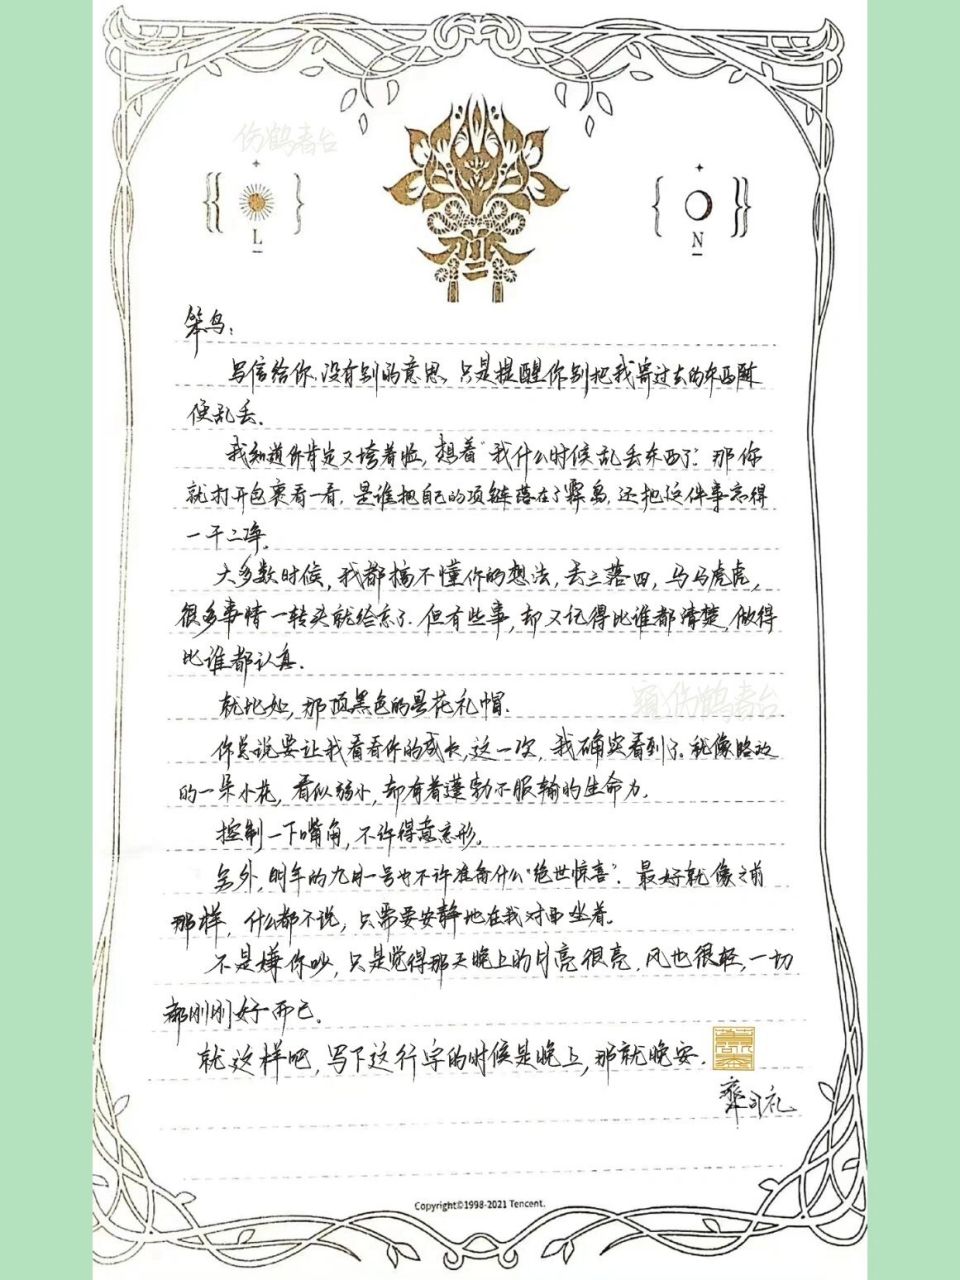 伤鹤春台
L
N
笨鸟：
写信给你，没有别的意思，只是提醒你别把我寄过去的东西随
便乱丢。
我知道你肯定又垮着脸，想着“我什么时候乱丢东西了”。那你
就打开包裹看一看，是谁把自己的项链落在了罪岛，还把这件事忘得
一干二净。
大多数时候，我都搞不懂你的想法，丢三落四，马马虎虎，
很多事情一转头就给忘了。但有些事，却又记得比谁都清楚，做得
比谁都认真。
就比如，那顶黑色的昙花礼帽。
你总说要让我看看你的成长，这一次，我确实看到了。就像路边
的一朵小花，看似弱小，却有着蓬勃不服输的生命力。
控制一下嘴角，不许得意忘形。
另外，明年的九月一号也不许准备什么“绝世惊喜”。最好就像之前
那样，什么都不说，只需要安静地在我对面坐着。
不是嫌你吵，只是觉得那天晚上的月亮很亮，风也很轻，一切
都刚刚好而已。
就这样吧，写下这行字的时候是晚上，那就晚安。
齐司礼
伤鹤春台
Copyright©1998-2021 Tencent.